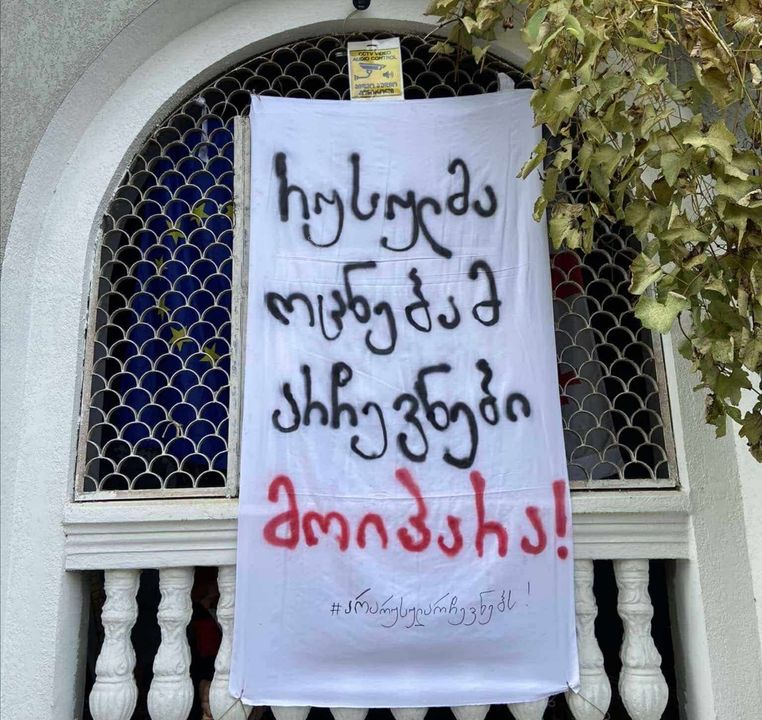 CCTV VIDEO
AUDIO CONTROL
რუსულმა
ოცნებამ
არჩევნები
მოიპარა!
#არარუსულარჩევნებს!